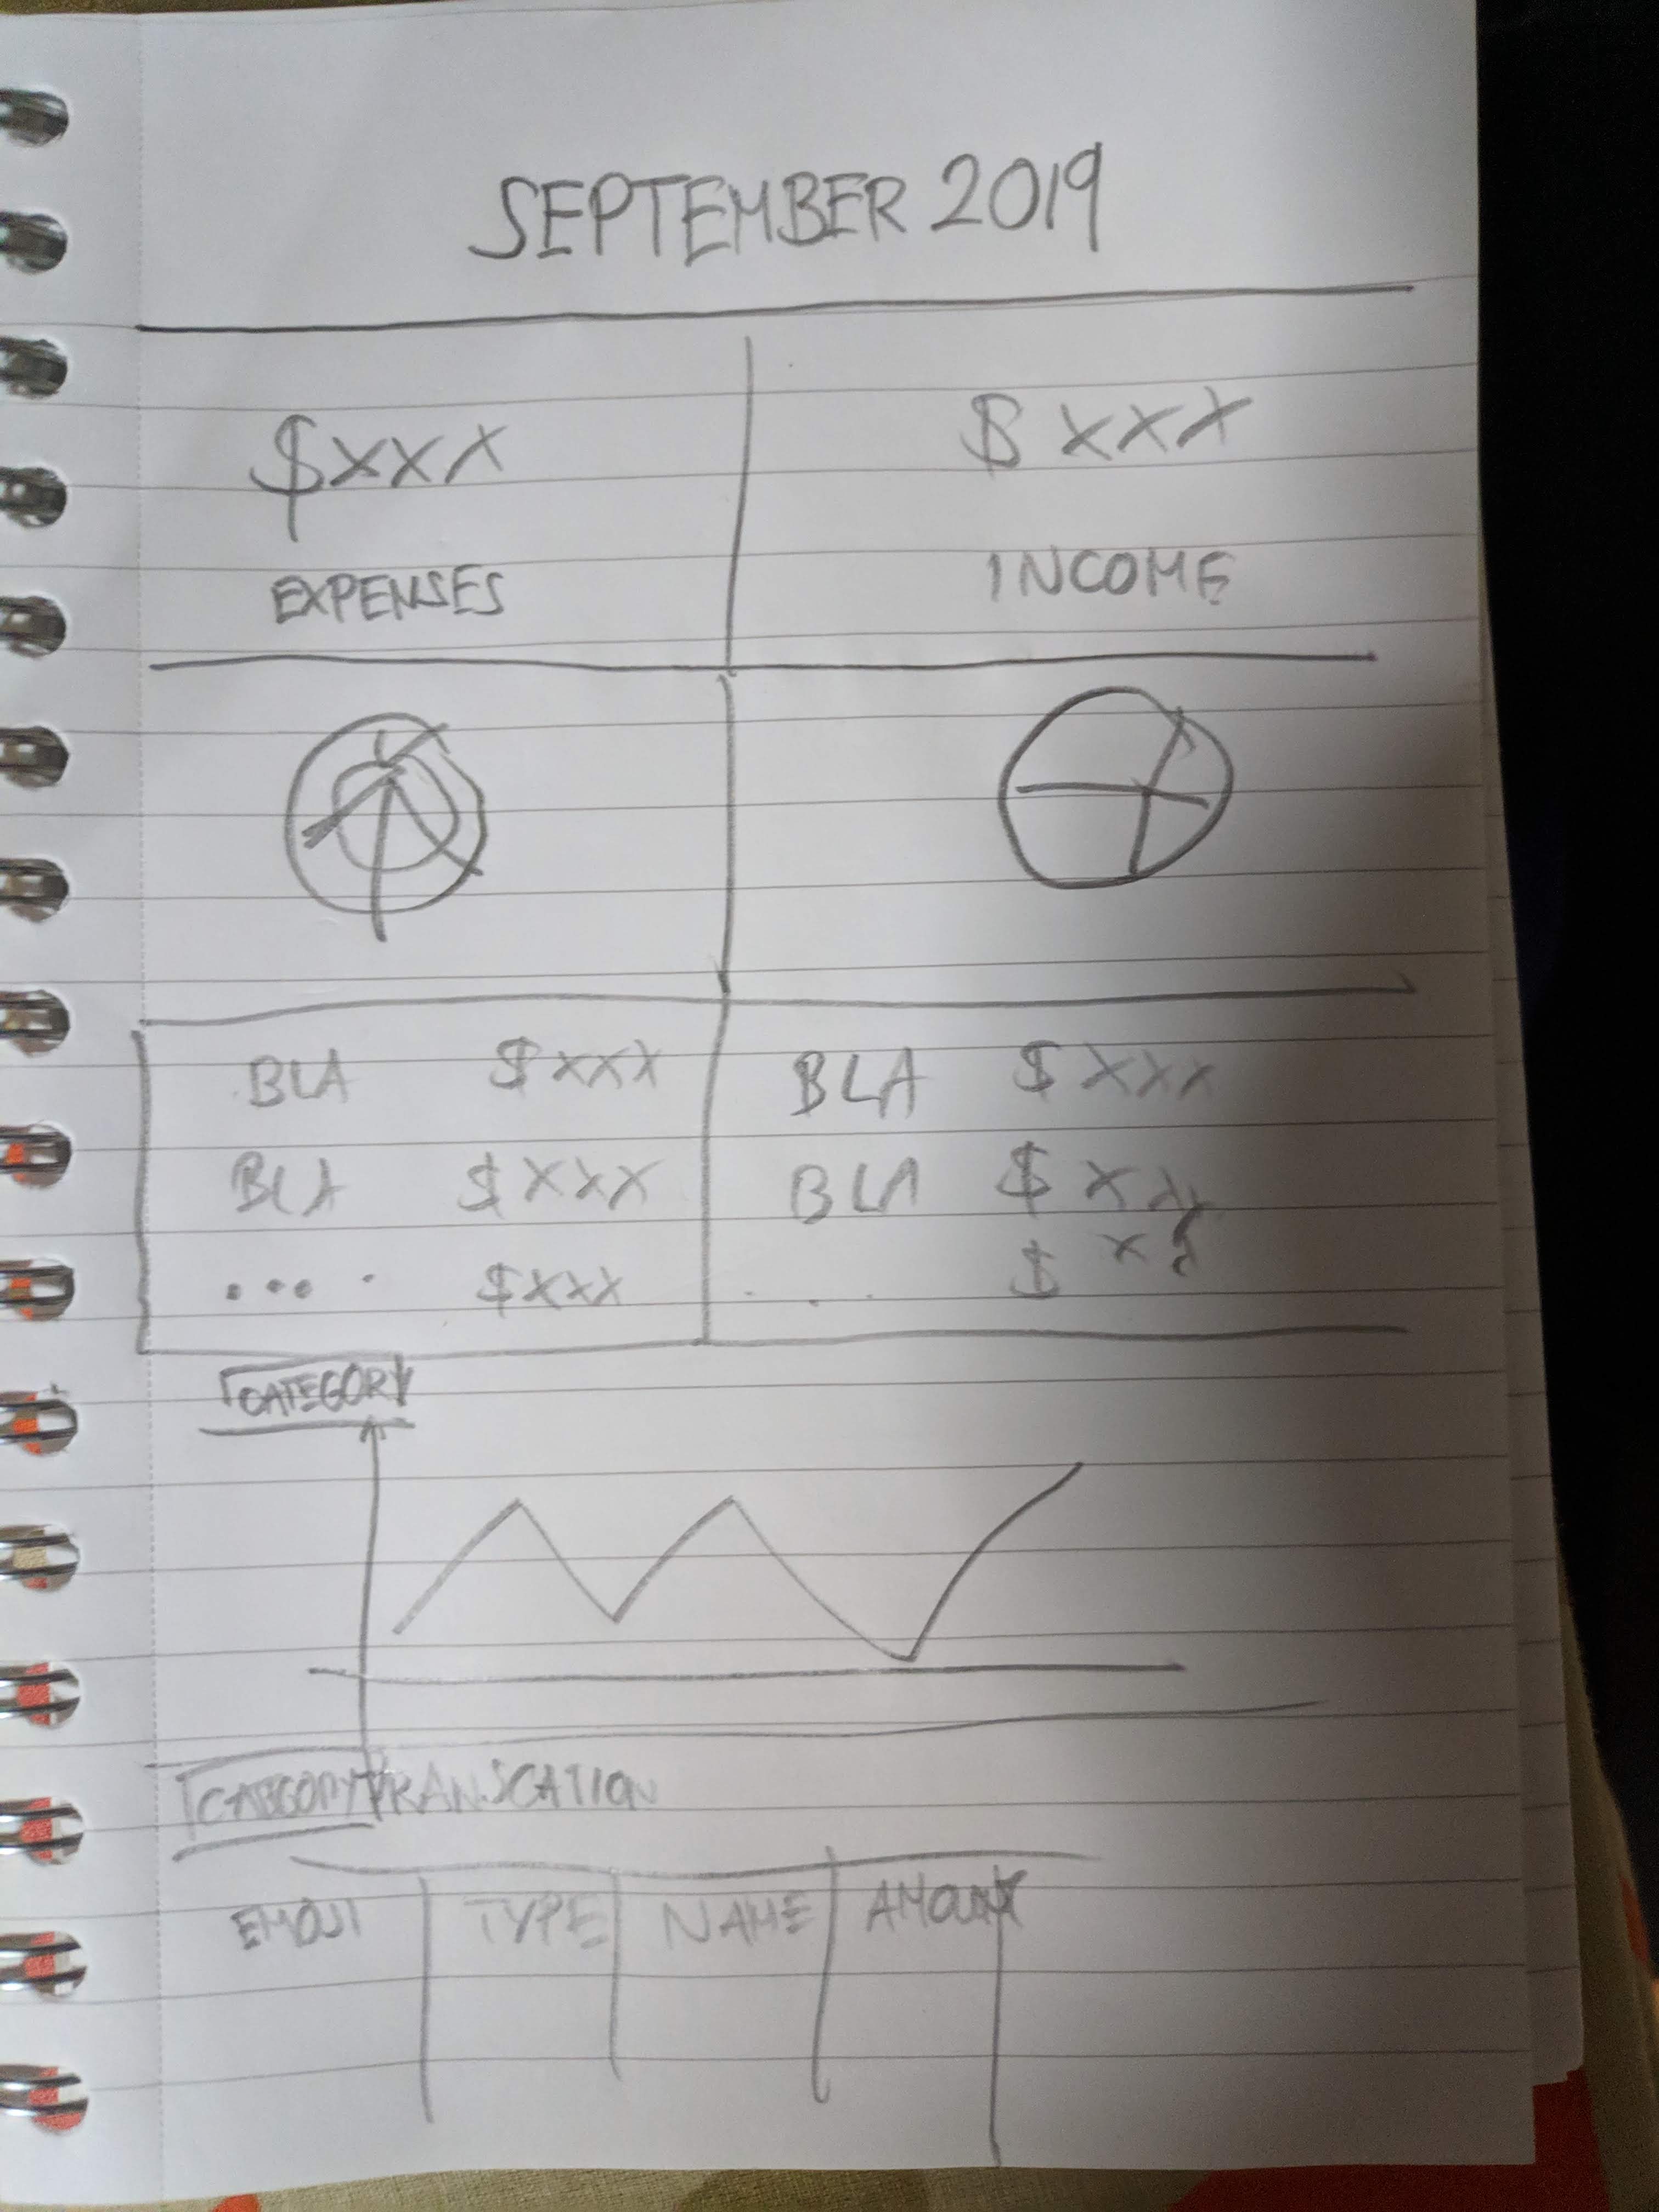 SEPTEMBER 2019
$XXX
$XXX
EXPENSES
INCOME
BLA $XXX
BLA $XXX
.... $XXX
BLA $XXX
BLA $XXX
... $XX
CATEGORY
CATEGORY TRANSCATION
EMOJI TYPE NAME AMOUNT